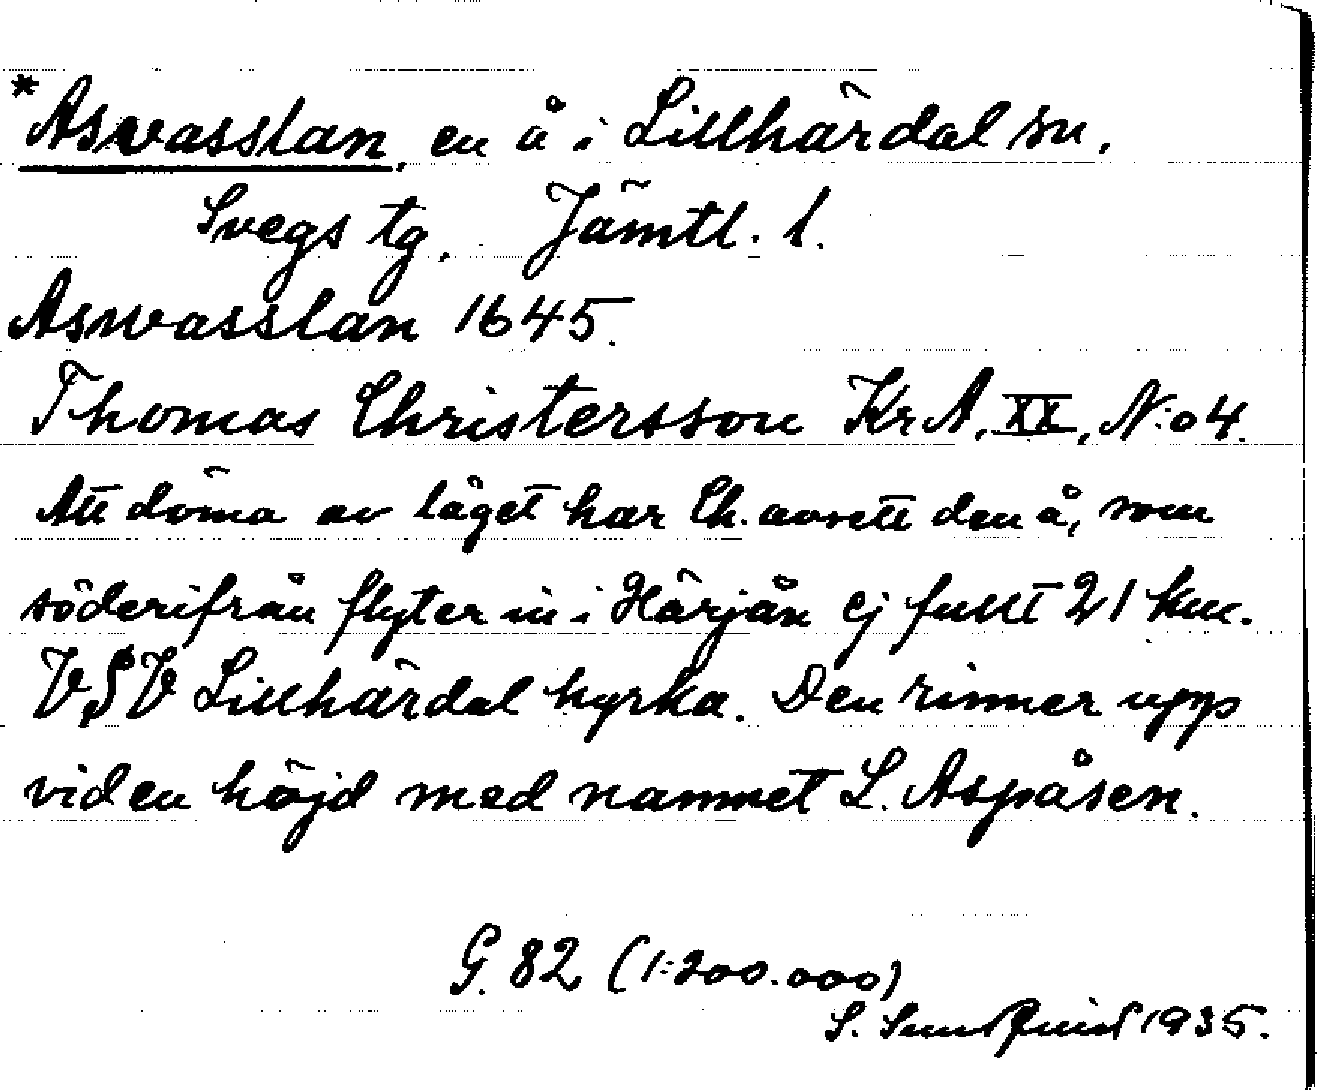 *Asvasslan, en å i Lillhärdal sn.
Svegs tg. Jämtl. l.
Aswasslan 1645.
Thomas Christersson KrA, XX, N:o 4.
Att döma av läget har Ch. avsett den å, som
söderifrån flyter in i Härjån ej fullt 21 km.
VSV Lillhärdal kyrka. Den rinner upp
vid en höjd med namnet L. Aspåsen.
G. 82 (1:200.000)
S. Sundquist 1935.